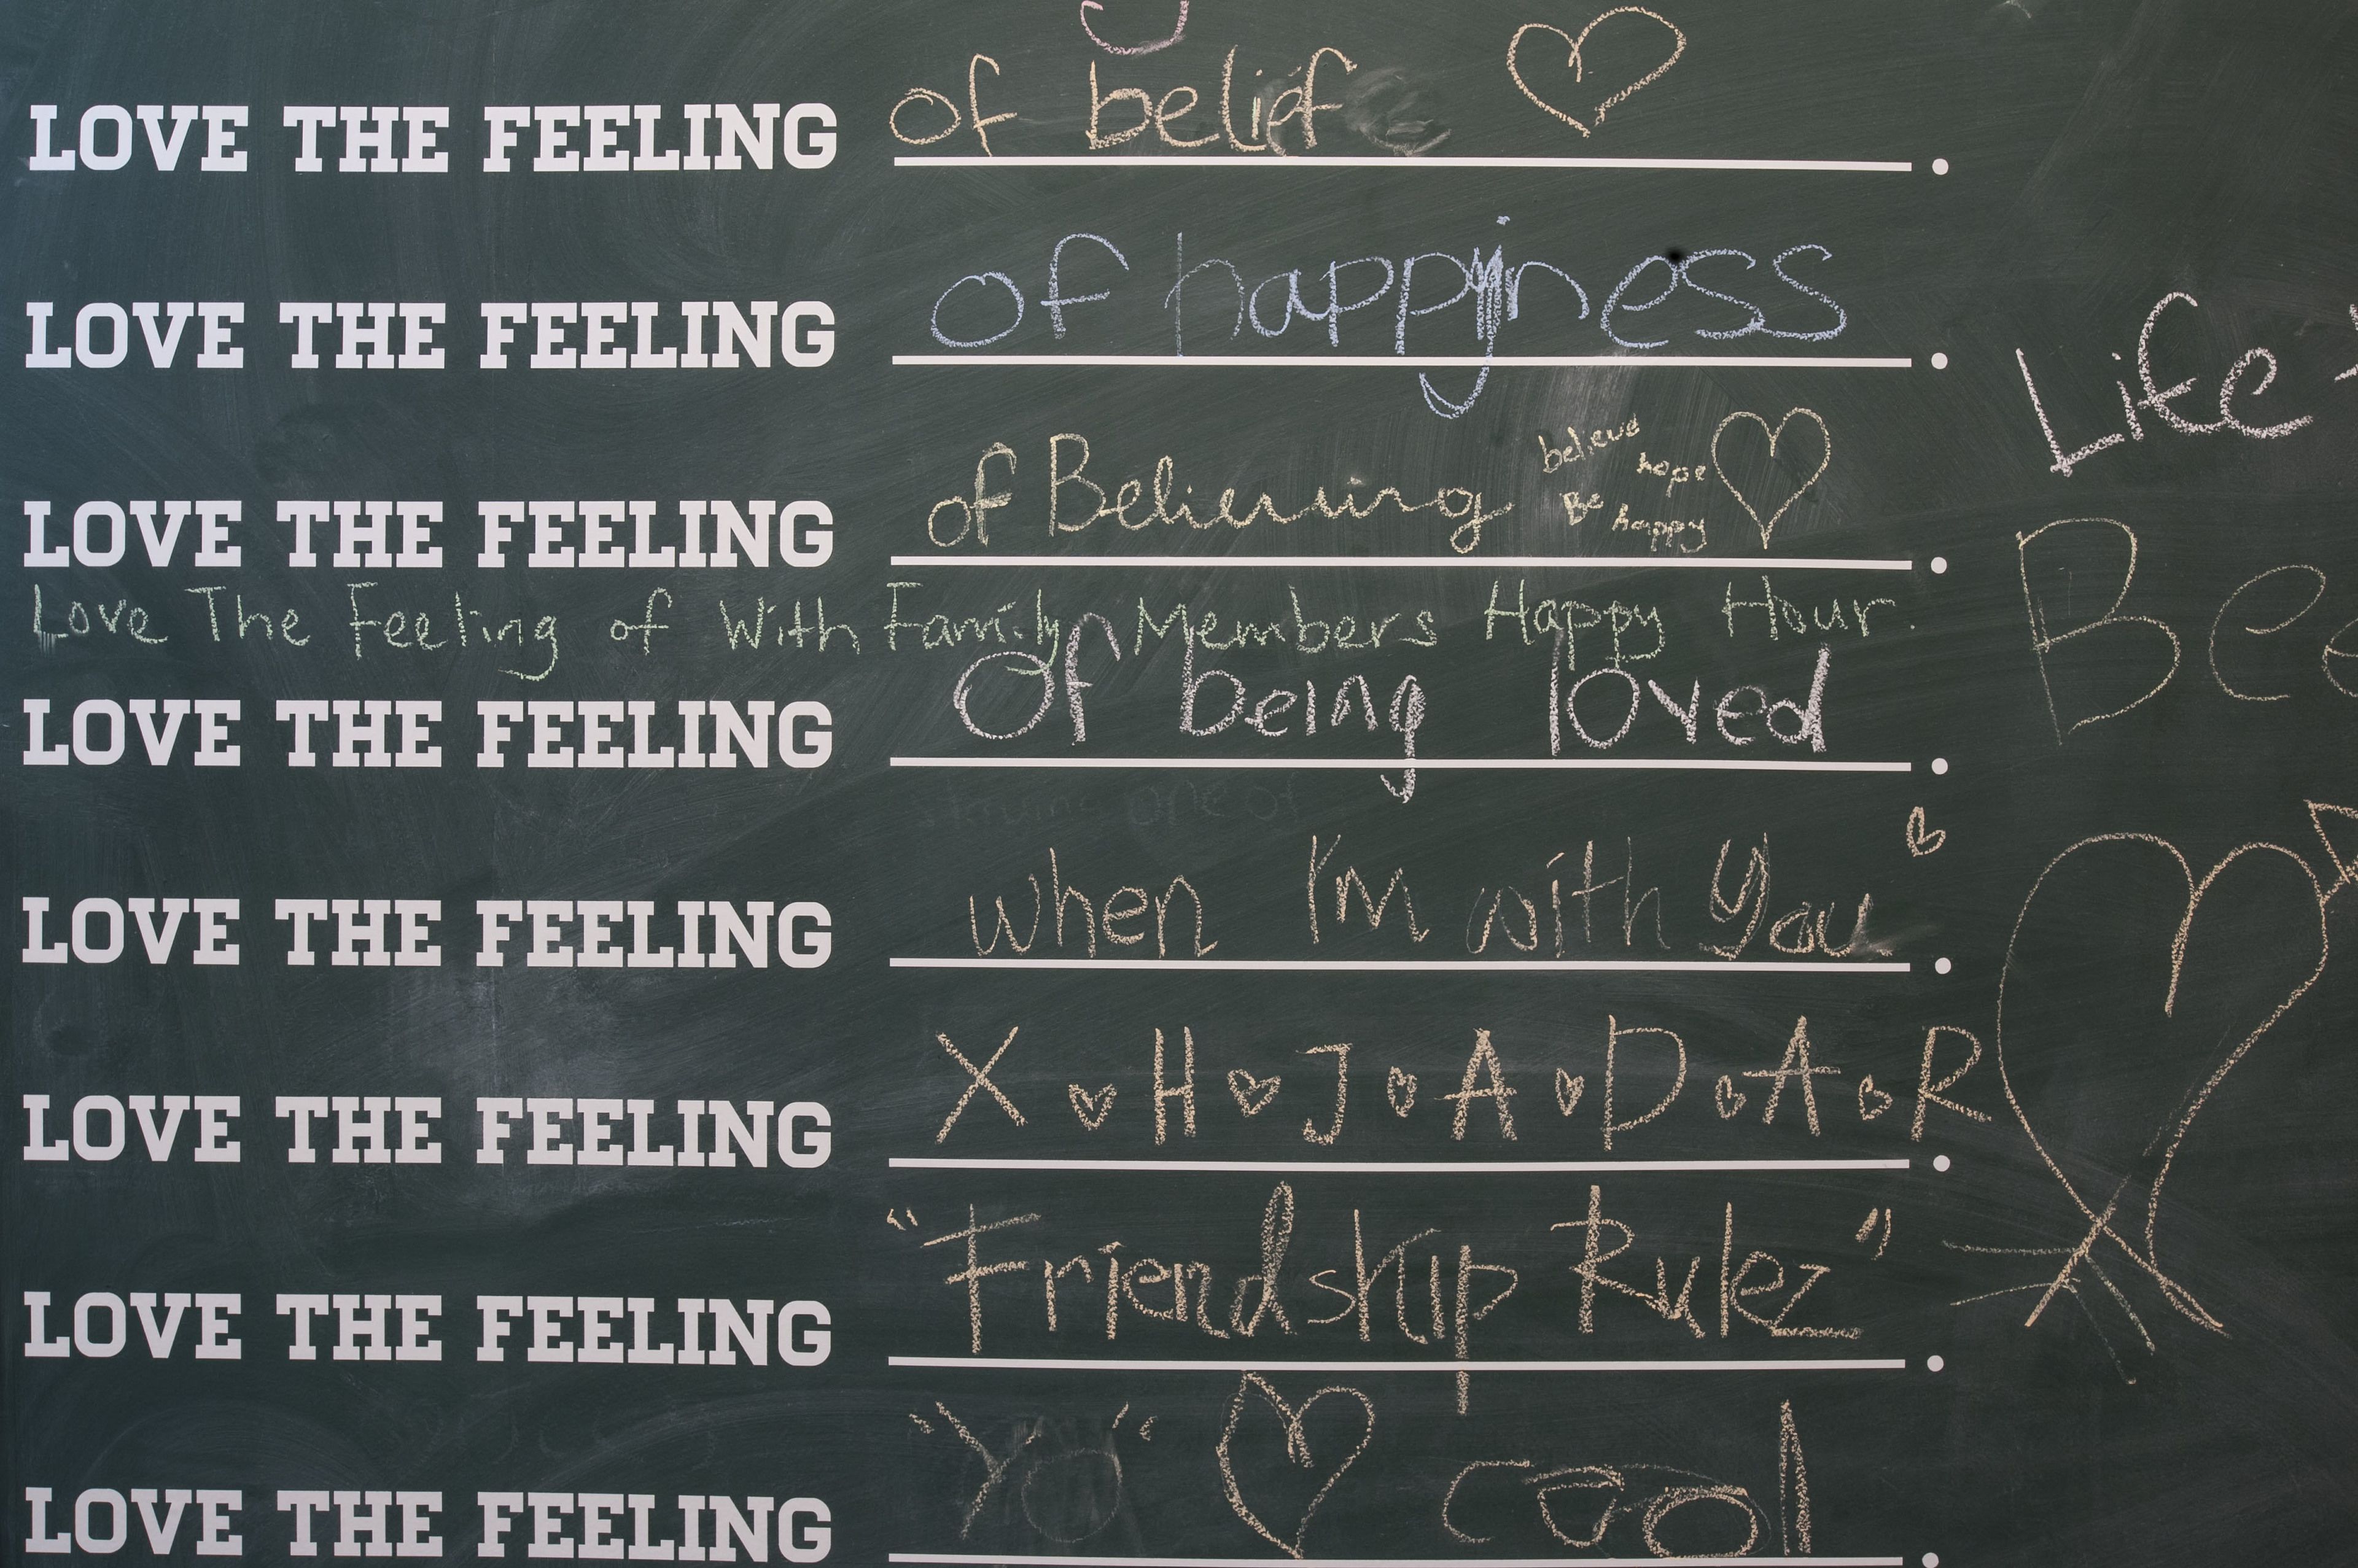 LOVE THE FEELING of belief
LOVE THE FEELING of happiness
Life
LOVE THE FEELING of Believing believe hope Be happy
Love The Feeling of With Family Members Happy Hour.
LOVE THE FEELING Of being loved
LOVE THE FEELING when I'm with You
LOVE THE FEELING X H J A D A R
LOVE THE FEELING "Friendship Rulez"
LOVE THE FEELING "Yo" cool